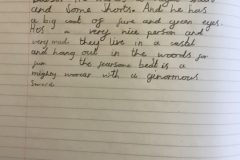 and some shorts. And he has
a big coat of fure and green eyes.
Hes a very nice person and
very much they live in a
and hang out in the words for
fun the fearsome beast is a
mighty worear with a ginormous
Sword